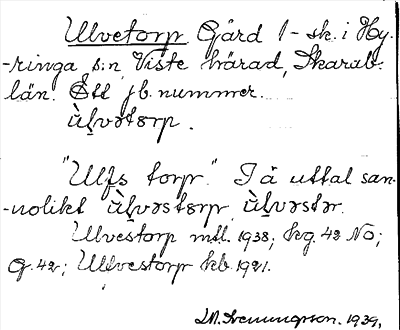 Ulvetorp Gård 1-sk. i Hy-
-ringa s:n Viste härad, Skarab.
län. Ett jb. nummer.
ùl̯vətɔrp.
"Ulfs torp." I ä uttal san-
-nolikt ùl̯vəstɔrp ùl̯vəstər.
Ulvestorp mtl. 1938; Kg. 42 NO;
G. 42; Ullvestorp kb. 1921.
1939.